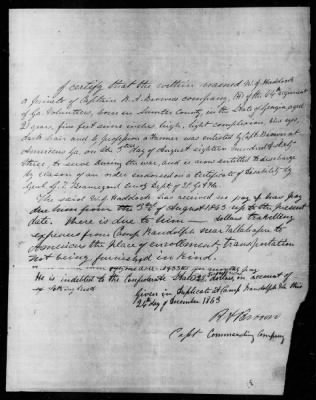 I certify that the within named W. J. Haddock
a private of Captain R. A. Brown's company, (D) of the 64th regiment
of Ga. Volunteers, born in Sumter County, in the State of Georgia, aged
2 years, five feet seven inches high, light complexion, blue eyes,
dark hair and by profession a Farmer was enlisted by Capt Brown at
Americus Ga, on the 3rd day of August eighteen hundred & sixty
three to serve during the war, and is now entitled to discharge
by reason of an order endorsed on a Certificate of Disability by
Genl G. T. Beauregard Com'dg Dept of S.C. Ga & Fla.
The said W. J. Haddock has received no pay & has pay
due him from the 3rd of August 1863 up to the present
date. There is due to him dollars travelling
expenses from Camp Randolph near Tallahassee to
Americus the place of enrollment, transportation
not being furnished in kind.
He is indebted to the Confederate States dollars, on account of
Clothing &c
Given in Duplicate at Camp Randolph Fla this
24th day of December 1863
R A Brown
Capt Commanding Company